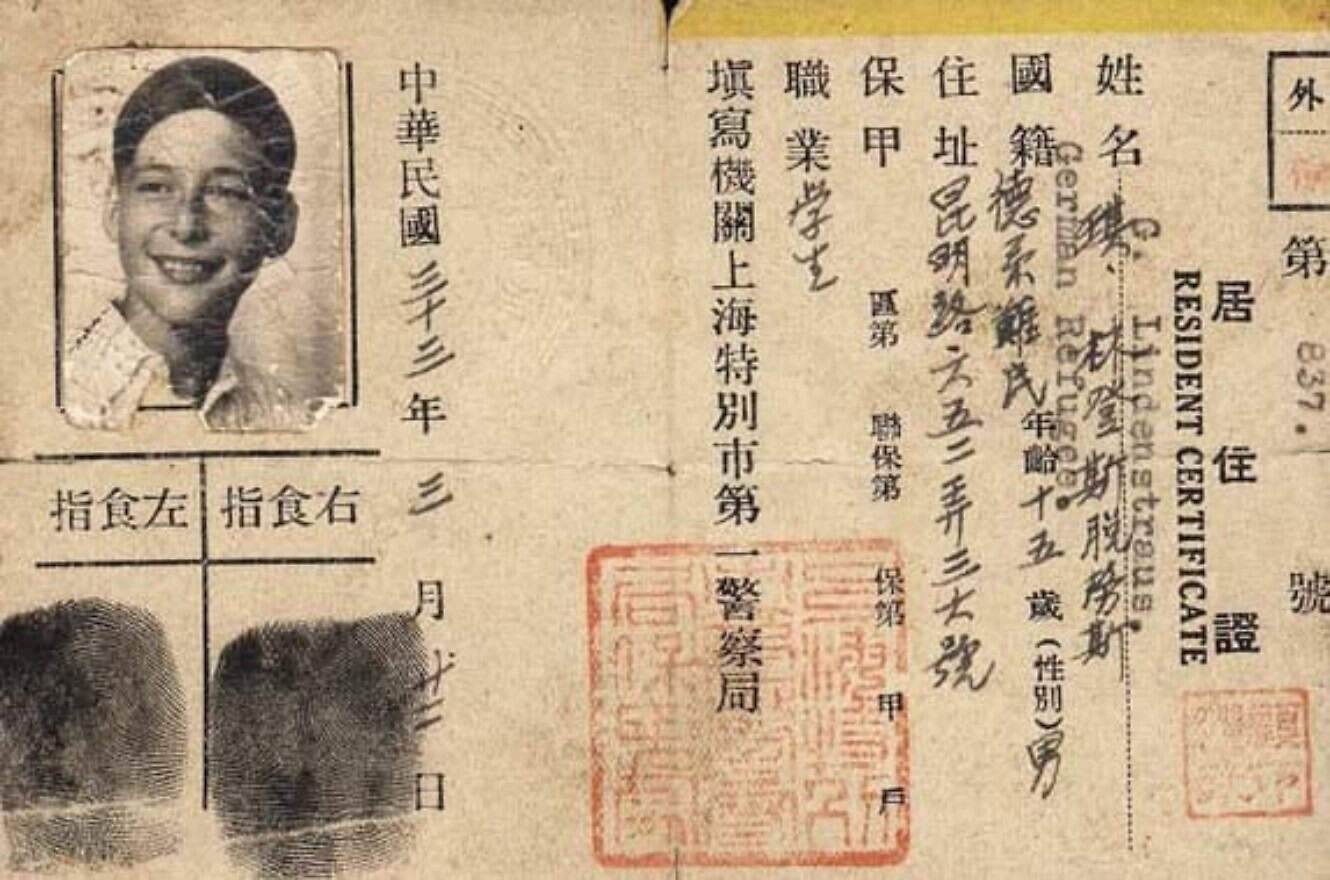 外
第 837. 號
居住證
RESIDENT CERTIFICATE
G. Lindenstraus.
姓名 琪、林登斯脱勞斯
German Refugee.
國籍 德系難民 年齡 十五 歲 (性別) 男
住址 昆明路六五二弄三六號
保甲 區第 聯保第 保第 甲 戶
職業 学生
填寫機關上海特別市第一警察局
中華民國 三十三 年 三 月 十二 日
右食指
左食指